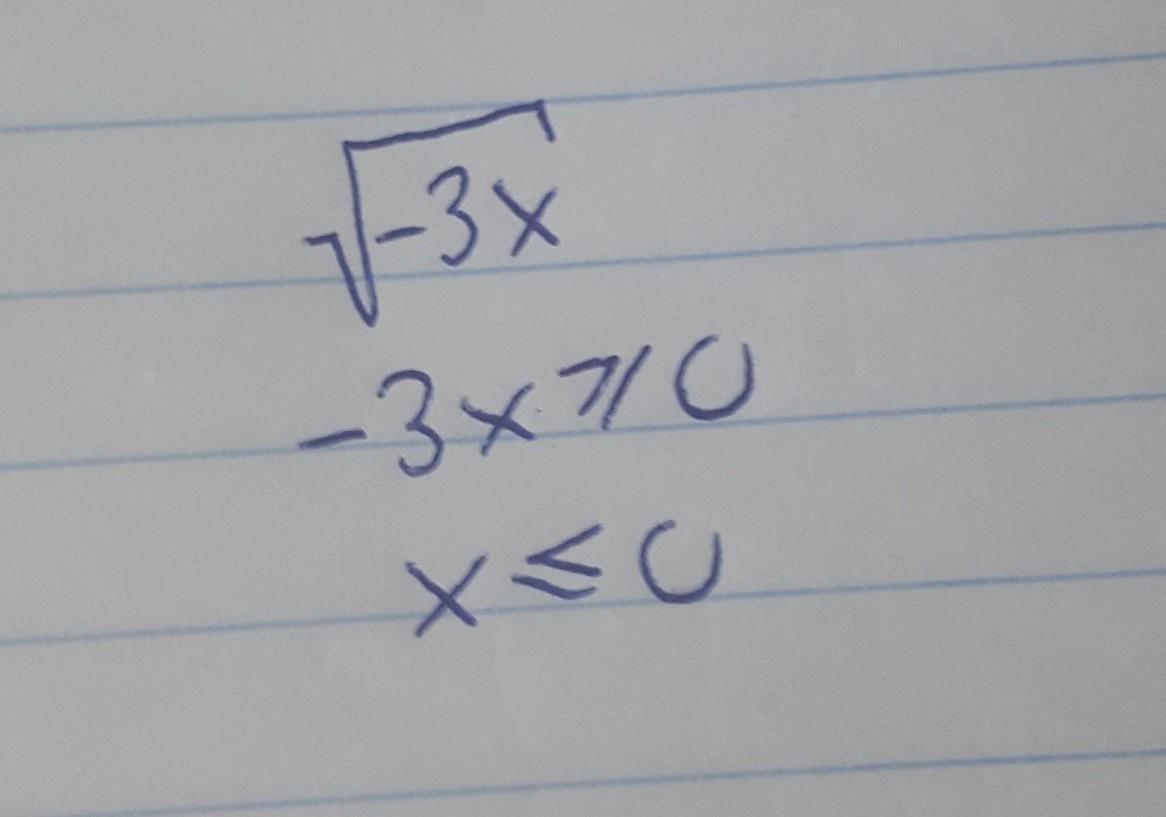 √-3x
-3x ⩾ 0
x ≤ 0